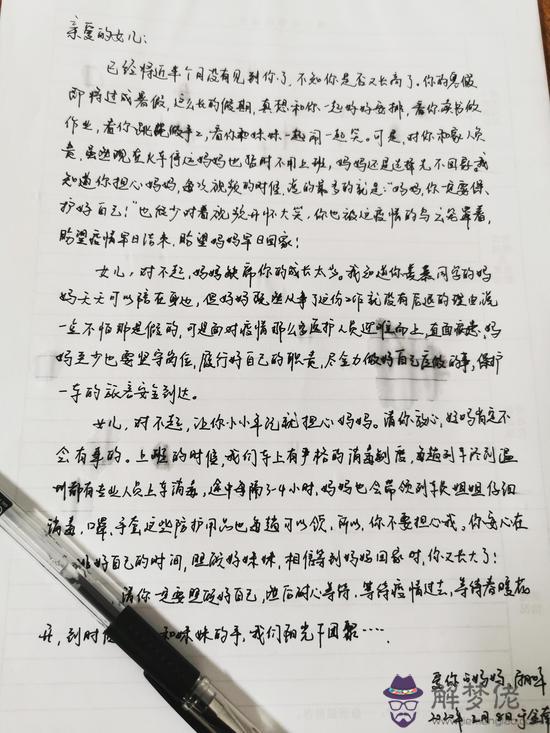 亲爱的女儿:
已经将近半个月没有见到你了,不知你是否又长高了。你的寒假
即将过成暑假,这么长的假期,真想和你一起好好安排,看你读书做
作业,看你跳绳做手工,看你和妹妹一起闹一起笑。可是,对你和家人负
责,虽然现在火车停运妈妈也暂时不用上班,妈妈还是选择先不回家。我
知道你担心妈妈,每次视频的时候,说的最多的就是"妈妈你一定要保
护好自己!"也很少对着视频开怀大笑,你也被这疫情的乌云笼罩着,
盼望疫情早日结束,盼望妈妈早日回家!
女儿,对不起,妈妈缺席你的成长太多。我知道你羡慕同学的妈
妈天天可以陪在身边,但妈妈既然从事了这份工作就没有后退的理由,说
一点不怕那是假的,可是面对疫情那么多医护人员迎难向上,直面病毒,妈
妈至少也要坚守岗位,履行好自己的职责,尽全力做好自己应做的事,保护
一车的旅客安全到达。
女儿,对不起,让你小小年纪就担心妈妈。请你放心,妈妈肯定不
会有事的。上班的时候,我们车上有严格的消毒制度,每趟列车终到温
州都有专业人员上车消毒,途中每隔3-4小时,妈妈也会带领列车员姐姐仔细
消毒,口罩,手套这些防护用品也每趟可以领,所以,你不要担心我。你安心在
好自己的时间,照顾好妹妹,相信等到妈妈回家时,你又长大了!
请你一定要照顾好自己,然后耐心等待,等待疫情过去,等待春暖花
开,到时候 和妹妹的手,我们阳光下团聚……
爱你的妈妈
2020年2月8日
解梦佬